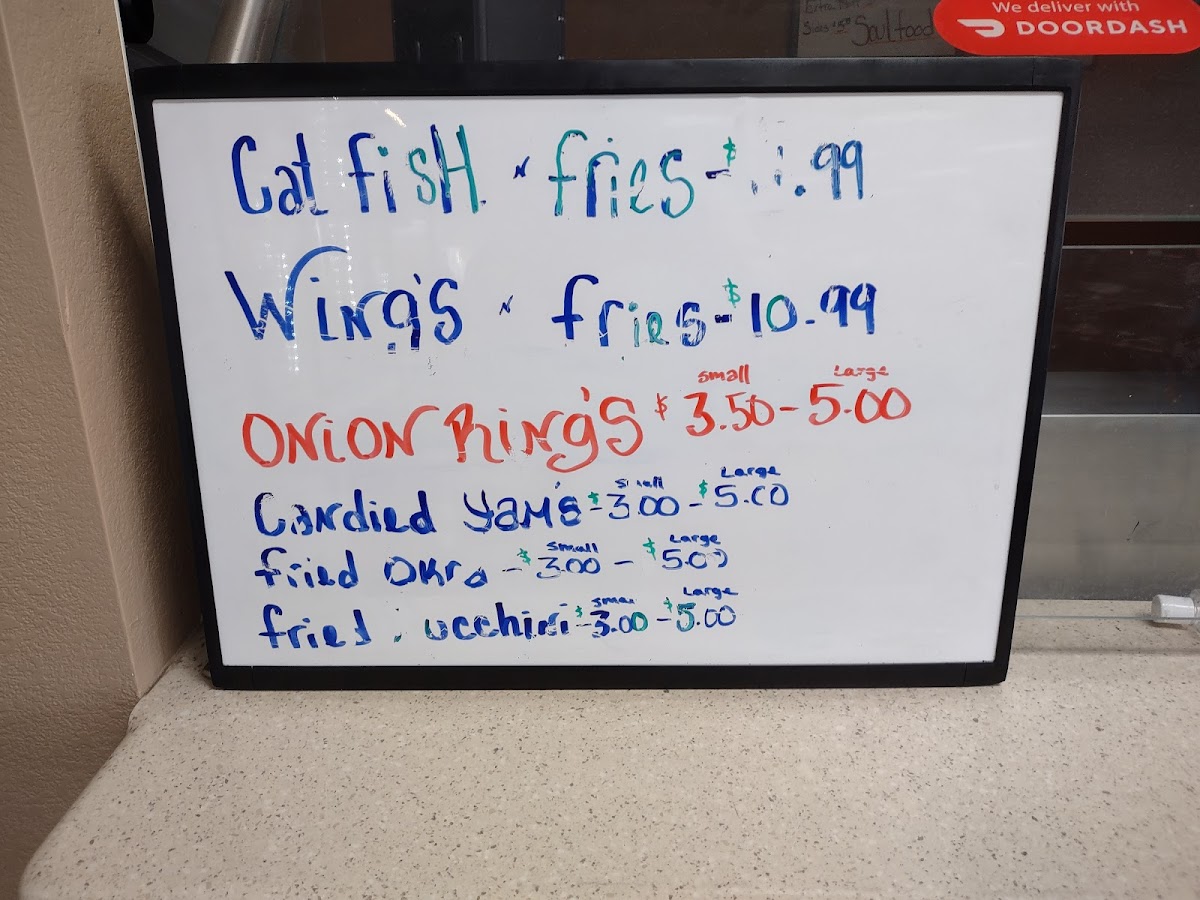 We deliver with
DOORDASH
Soul food
Cat fisH n fries - $ .99
Wing's n fries - $10.99
small Large
ONION Ring's $ 3.50 - 5.00
small Large
Candied Yam's - $3.00 - $5.00
small Large
fried Okra - $3.00 - $5.00
small Large
fried ucchini - $3.00 - $5.00